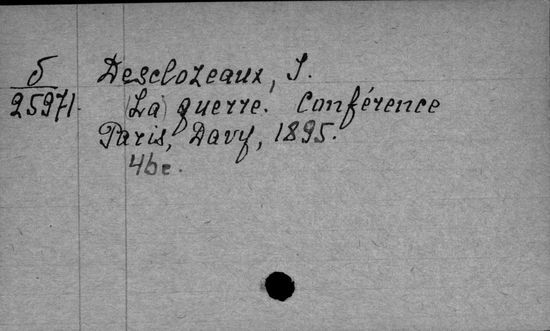 5
25971.
Desclozeaux, J.
(La) guerre. Conférence
Paris, Davy, 1895.
46 c.